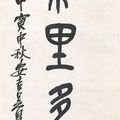 里多
甲寅中秋安吉吳昌